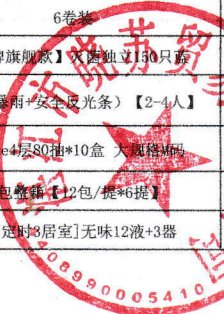 6卷装
旗舰款】灭菌独立150只蓝
暴雨+安全反光条）【2-4人】
e4层80抽*10盒 大规格M码
包整箱【12包/提*6提】
定时3居室]无味12液+3器
贸
4089900054 10